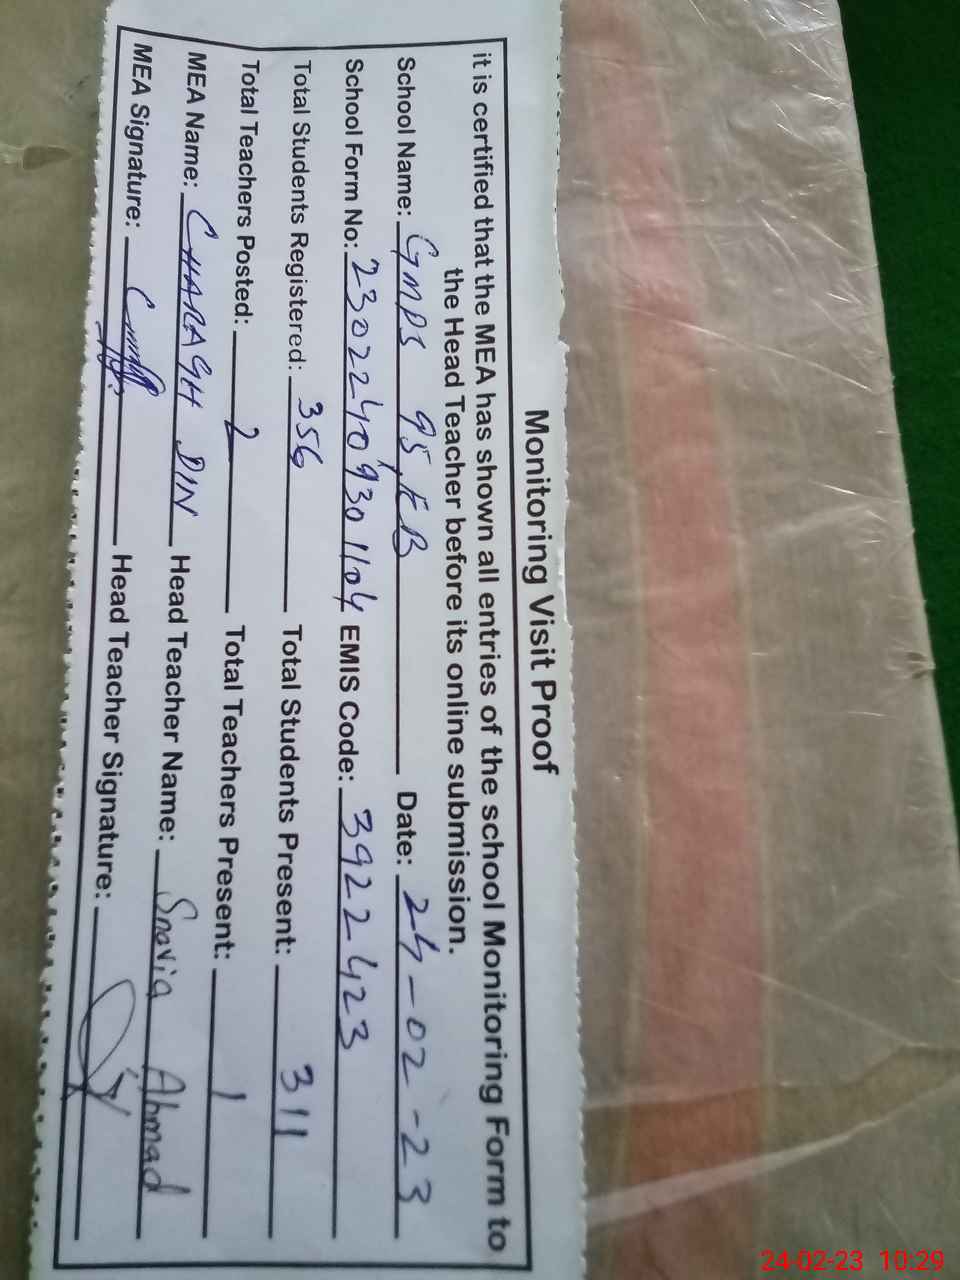 Monitoring Visit Proof
it is certified that the MEA has shown all entries of the school Monitoring Form to
the Head Teacher before its online submission.
School Name: GMPS 95, EB Date: 24-02-23
School Form No: 23022409301104 EMIS Code: 3922423
Total Students Registered: 356 Total Students Present: 311
Total Teachers Posted: 2 Total Teachers Present: 1
MEA Name: CHARAGH DIN Head Teacher Name: Ahmad
MEA Signature: Head Teacher Signature:
24-02-23 10:29